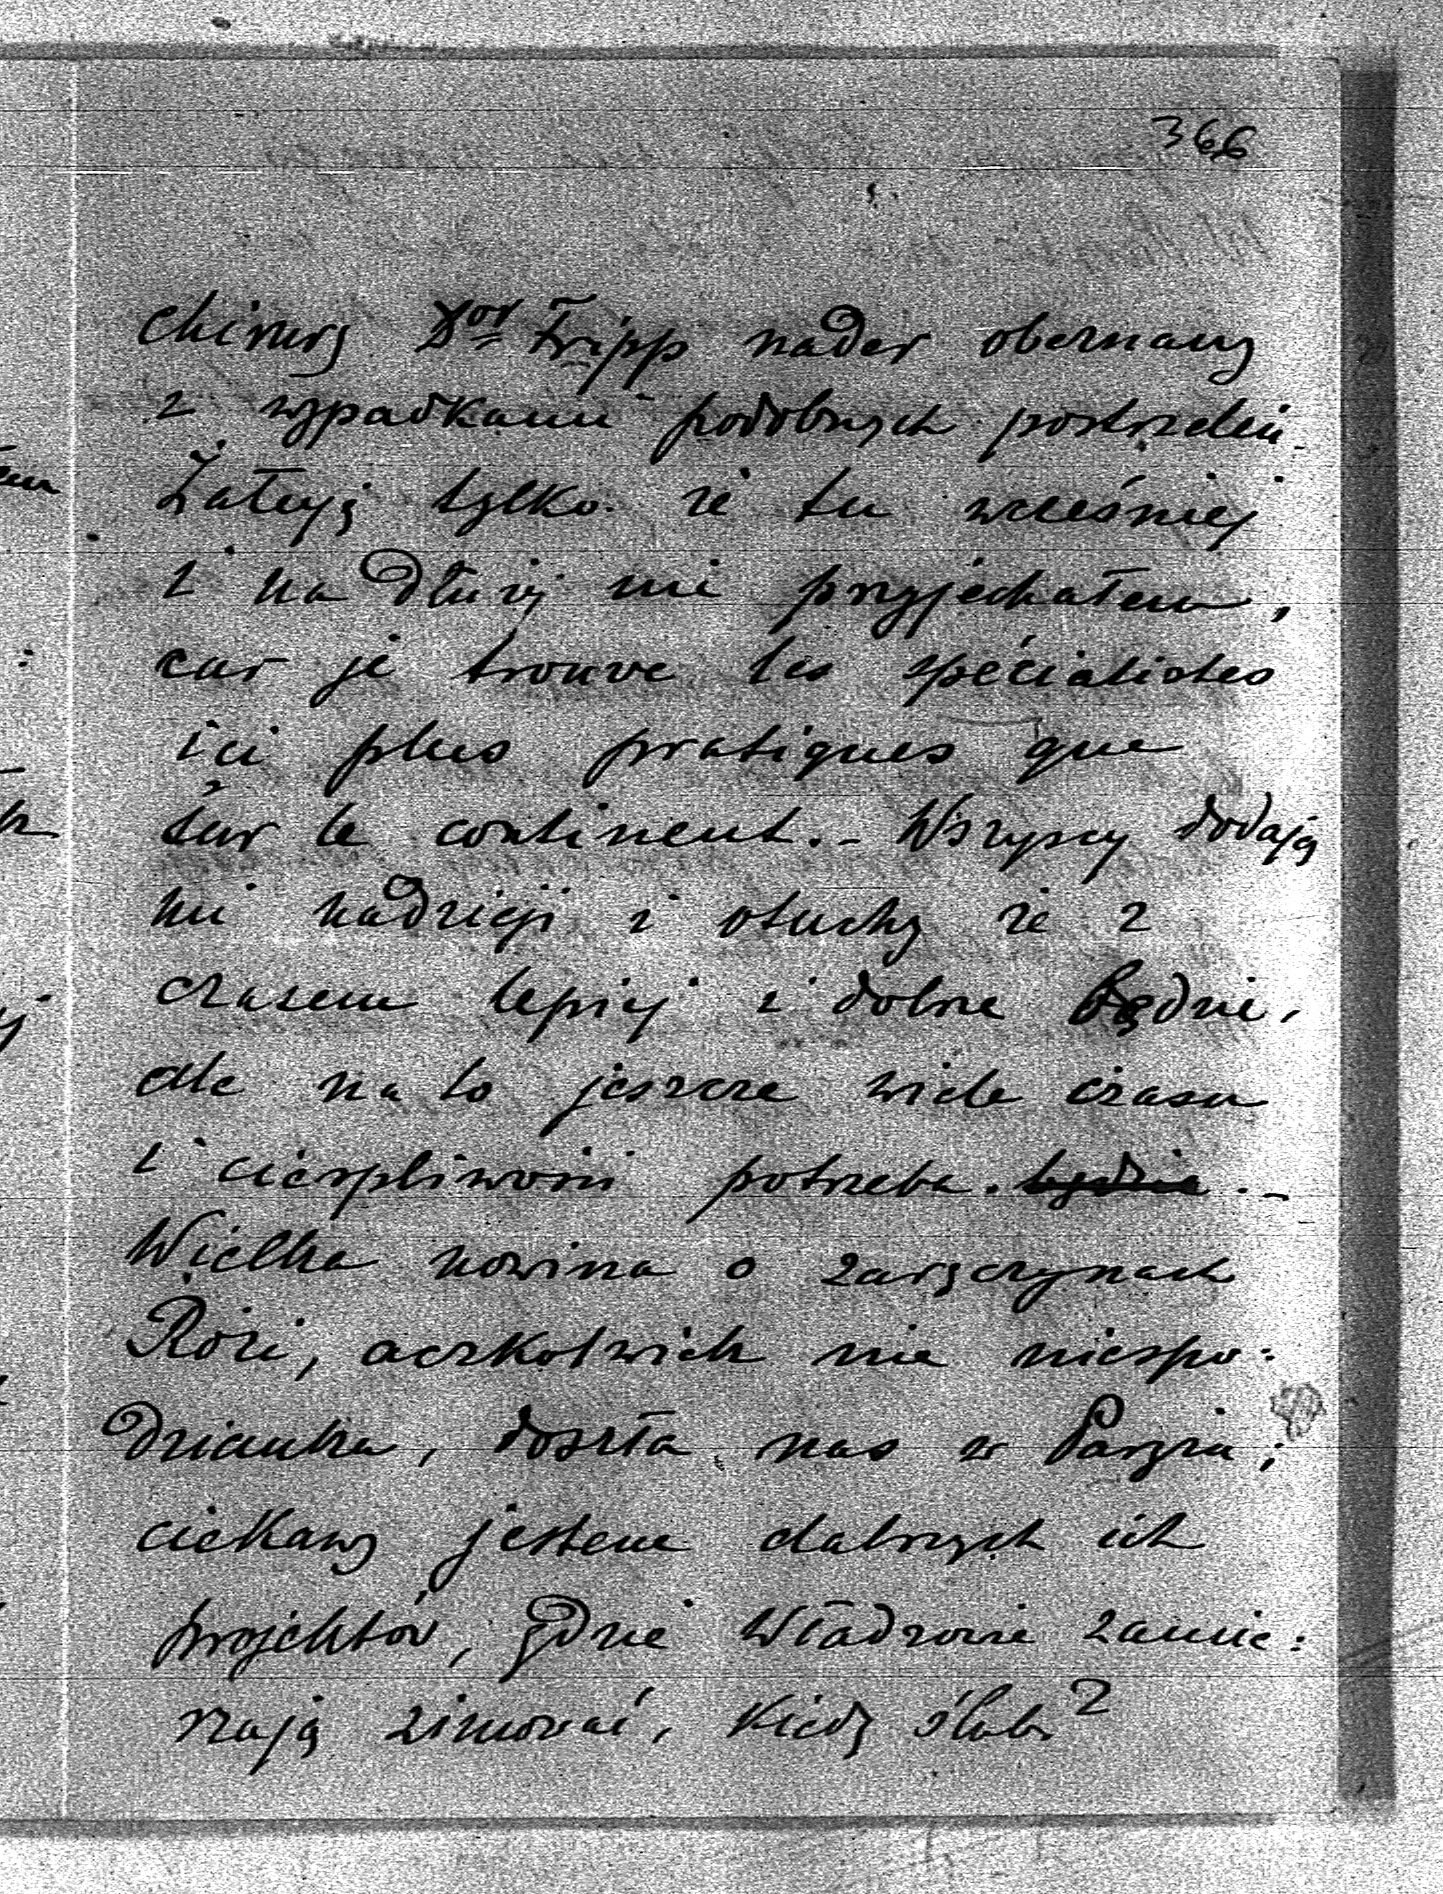 366
chirurg Dor Fripp nader obeznany
z wypadkami podobnych postrzeleń
Żałuję tylko że tu wcześniej
i na dłużej nie przyjechałem,
car je trouve les spécialistes
ici plus pratiques que
sur le continent.- Wszyscy dodają
mi nadzieji i otuchy że z
czasem lepiej i dobrze będzie,
ale na to jeszcze wiele czasu
i cierpliwości potrzeba. będzie.-
Wielka nowina o zaręczynach
Rózi, aczkolwiek nie niespo:
dzianka, doszła nas w Paryżu;
ciekawy jestem dalszych ich
projektów, gdzie Władziowie zamie:
rzają zimować, kiedy ślub?